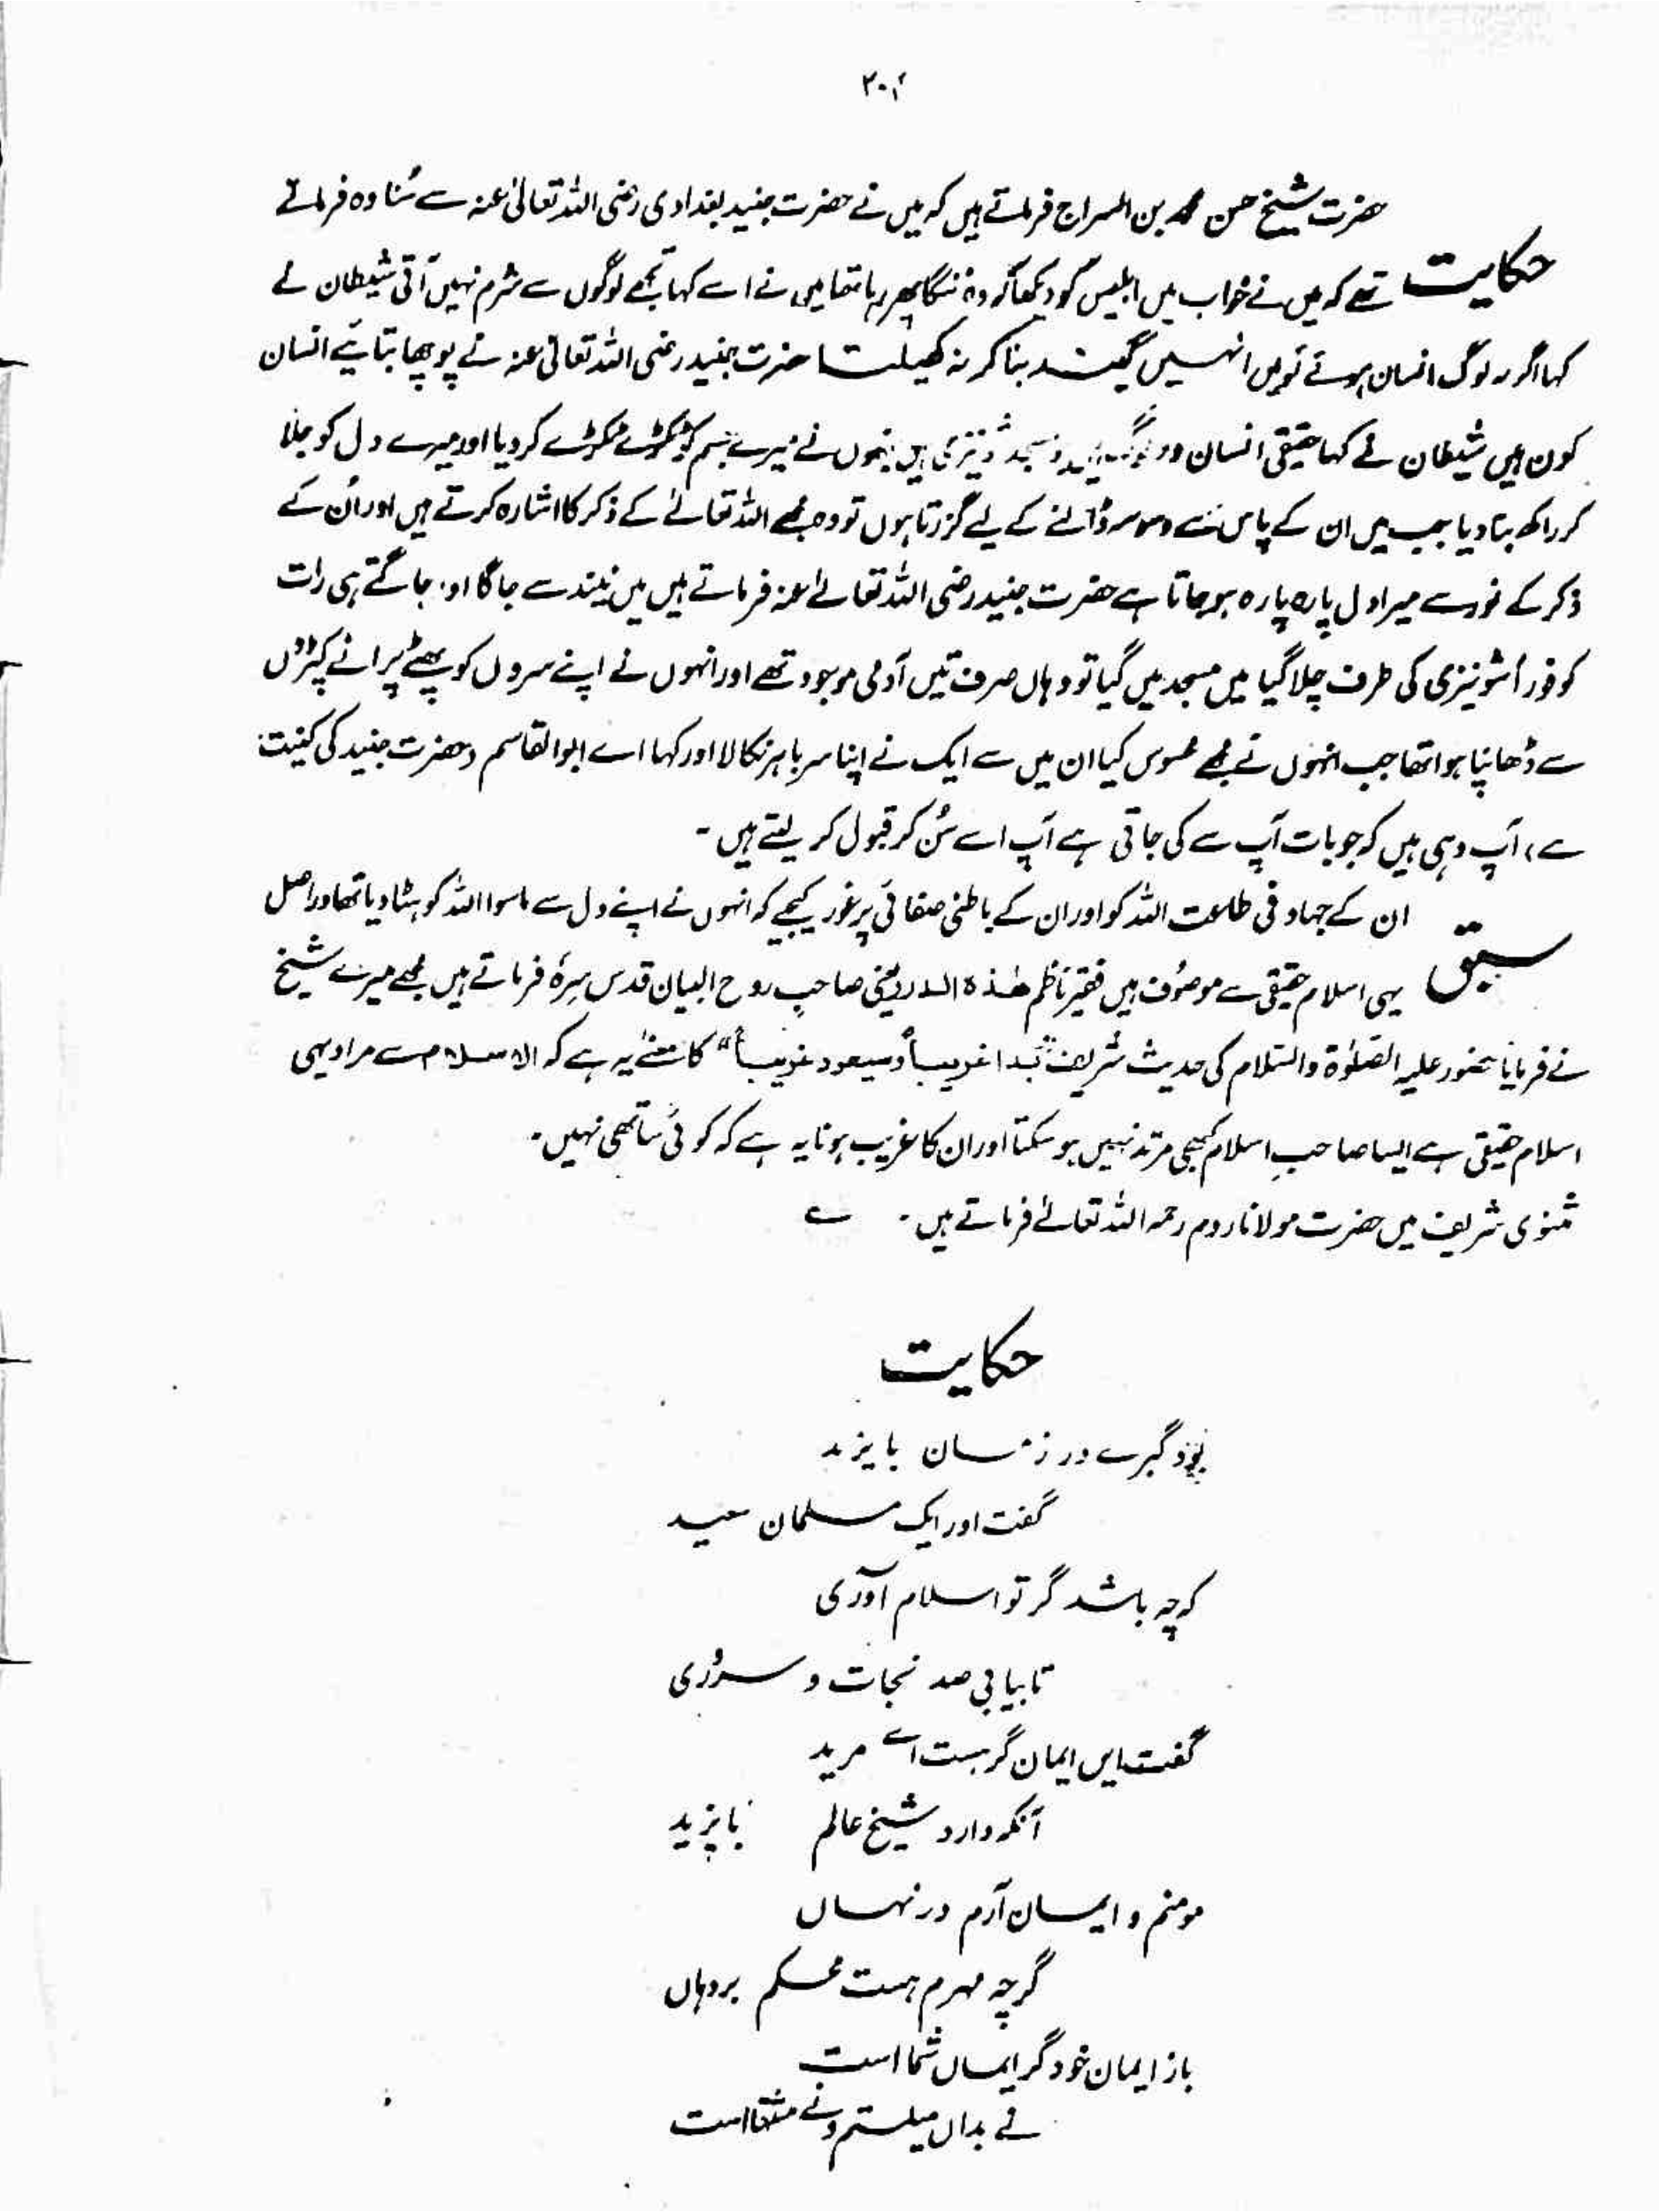 ۲۰۲
حضرت شیخ حسن محمد بن السراج فرماتے ہیں کہ میں نے حضرت جنید بغدادی رضی اللہ تعالیٰ عنہ سے سُنا وہ فرماتے
حکایت تھے کہ میں نے خواب میں ابلیس کو دیکھا کہ وہ ننگا پھر رہا تھا میں نے اسے کہا تجھے لوگوں سے شرم نہیں آتی شیطان نے
کہا اگر یہ لوگ انسان ہوتے تو میں انہیں گیند بنا کر نہ کھیلتا حضرت جنید رضی اللہ تعالیٰ عنہ نے پوچھا بتایئے انسان
کون ہیں شیطان نے کہا حقیقی انسان وہ مسجد شونیزی ہیں جنہوں نے میرے جسم کو ٹکڑے ٹکڑے کر دیا اور میرے دل کو جلا
کر راکھ بنا دیا جب میں ان کے پاس سے وسوسہ ڈالنے کے لیے گزرتا ہوں تو وہ مجھے اللہ تعالےٰ کے ذکر کا اشارہ کرتے ہیں اور اُن کے
ذکر کے نور سے میرا دل پارہ پارہ ہو جاتا ہے حضرت جنید رضی اللہ تعالےٰ عنہ فرماتے ہیں میں نیند سے جاگا اور جاگتے ہی رات
کو فوراً شونیزی کی طرف چلا گیا میں مسجد میں گیا تو وہاں صرف تین آدمی موجود تھے اور انہوں نے اپنے سروں کو پھٹے پرانے کپڑوں
سے ڈھانپا ہوا تھا جب انہوں نے مجھے محسوس کیا ان میں سے ایک نے اپنا سر باہر نکالا اور کہا اے ابوالقاسم (حضرت جنید کی کنیت
ہے) آپ وہی ہیں کہ جو بات آپ سے کی جاتی ہے آپ اسے سُن کر قبول کر لیتے ہیں ۔
ان کے جہاد فی طاعت اللہ کو اور ان کے باطنی صفائی پر غور کیجیے کہ انہوں نے اپنے دل سے ماسوا اللہ کو ہٹا دیا تھا دراصل
سبق یہی اسلام حقیقی سے موصُوف ہیں فقیر ناظم ھٰذہ الدرر یعنی صاحبِ روح البیان قدس سِرّہٗ فرماتے ہیں مجھے میرے شیخ
نے فرمایا حضور علیہ الصّلوٰۃ والسّلام کی حدیث شریف "بَدا غریباً وسیعود غریباً" کا معنےٰ یہ ہے کہ الاسلام سے مراد یہی
اسلام حقیقی ہے ایسا صاحبِ اسلام کبھی مرتد نہیں ہو سکتا اور ان کا غریب ہونا یہ ہے کہ کوئی ساتھی نہیں ۔
مثنوی شریف میں حضرت مولانا روم رحمہ اللہ تعالےٰ فرماتے ہیں ۔ ؎
حکایت
بود گبرے در زمان بایزید
گفت اورا یک مسلمان سعید
کہ چہ باشد گر تو اسلام آوری
تا بیابی صد نجات و سروری
گفت ایں ایمان گر ہست اے مرید
آنکہ دارد شیخ عالم بایزید
مومنم و ایمان آرم در نہاں
گرچہ مہرم ہست محکم بر دہاں
باز ایمان خود گر ایماں شما است
نے بداں میلستم و نے مشتہا است